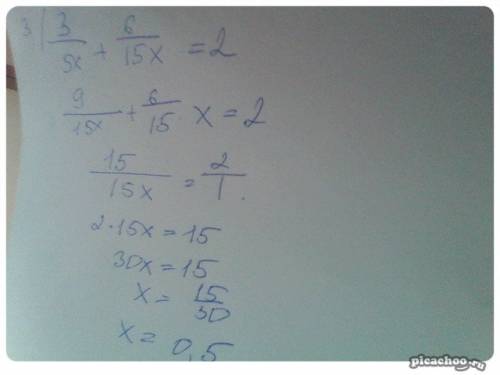 3) 3/5x + 6/15x = 2
9/15x + 6/15 x = 2
15/15x = 2/1.
2·15x = 15
30x = 15
x = 15/30
x = 0,5
picachoo.ru